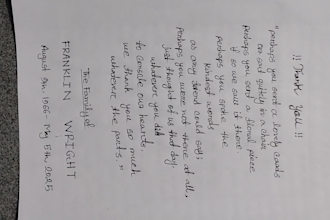 !! Thank You !!
"perhaps you sent a lovely cards
or sat quitely in a chair
perhaps you send a floral piece
if so we saw it there
perhaps you spoke the
kindest words
as any friend could say;
perhaps you were not there at all,
just thought of us that day.
whatever you did
to console our hearts.
we thank you so much
whatever the parts."
The Family of
FRANKLIN WRIGHT
August 9th, 1966 - May 5th, 2025